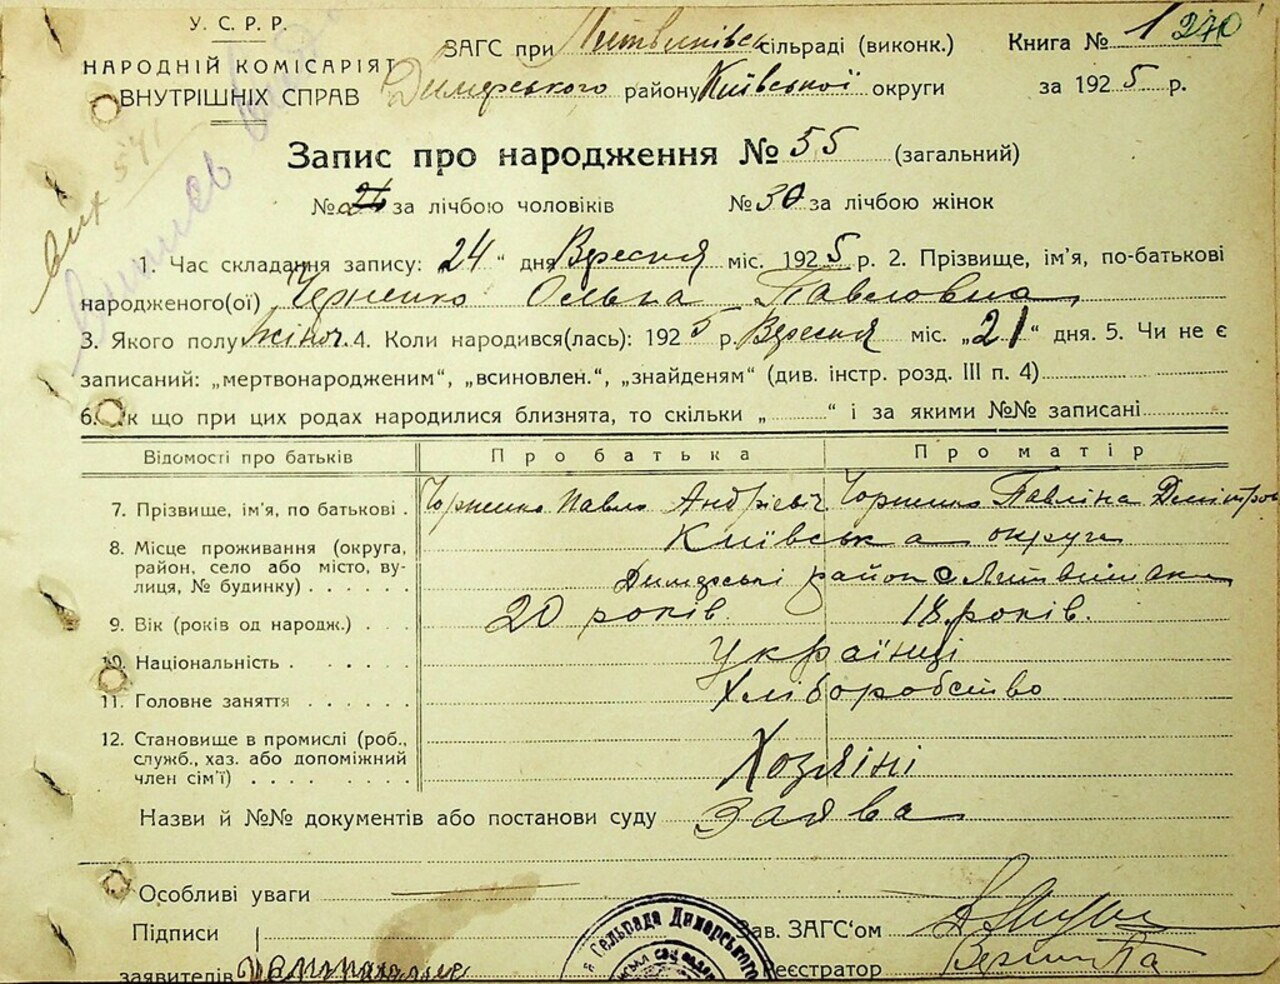 У. С. Р. Р.
НАРОДНІЙ КОМІСАРІЯТ
ВНУТРІШНІХ СПРАВ
ЗАГС при Литвинівс сільраді (виконк.)
Димерського району Київської округи
Книга № 1 240
за 1925 р.
вих 541
Запис про народження № 55 (загальний)
№ за лічбою чоловіків № 30 за лічбою жінок
1. Час складання запису: 24 " дня Вересня міс. 1925 р. 2. Прізвище, ім'я, по-батькові
народженого(ої) Ольга Павловна
3. Якого полу жіноч. 4. Коли народився(лась): 1925 р. Вересня міс. „21“ дня. 5. Чи не є
записаний: „мертвонародженим“, „всиновлен.“, „знайденям“ (див. інстр. розд. III п. 4)
6. к що при цих родах народилися близнята, то скільки „ “ і за якими №№ записані
Відомості про батьків Про батька Про матір
7. Прізвище, ім'я, по батькові . Чорненко Павло Андрієвіч Чорненко Павліна Дмітров
8. Місце проживання (округа, Київська округа
район, село або місто, ву-
лиця, № будинку) . . . . . . Димерські район с Литвинівка
9. Вік (років од народж.) . . . 20 років. 18 років.
10. Національність . . . . . . Українці
11. Головне заняття . . . . . . Хліборобство
12. Становище в промислі (роб.,
служб., хаз. або допоміжний
член сім'ї) . . . . . . . . Хозяїні
Назви й №№ документів або постанови суду Заява
Особливі уваги
Підписи
заявителів
Сельрада Димарського
Зав. ЗАГС'ом
Реєстратор